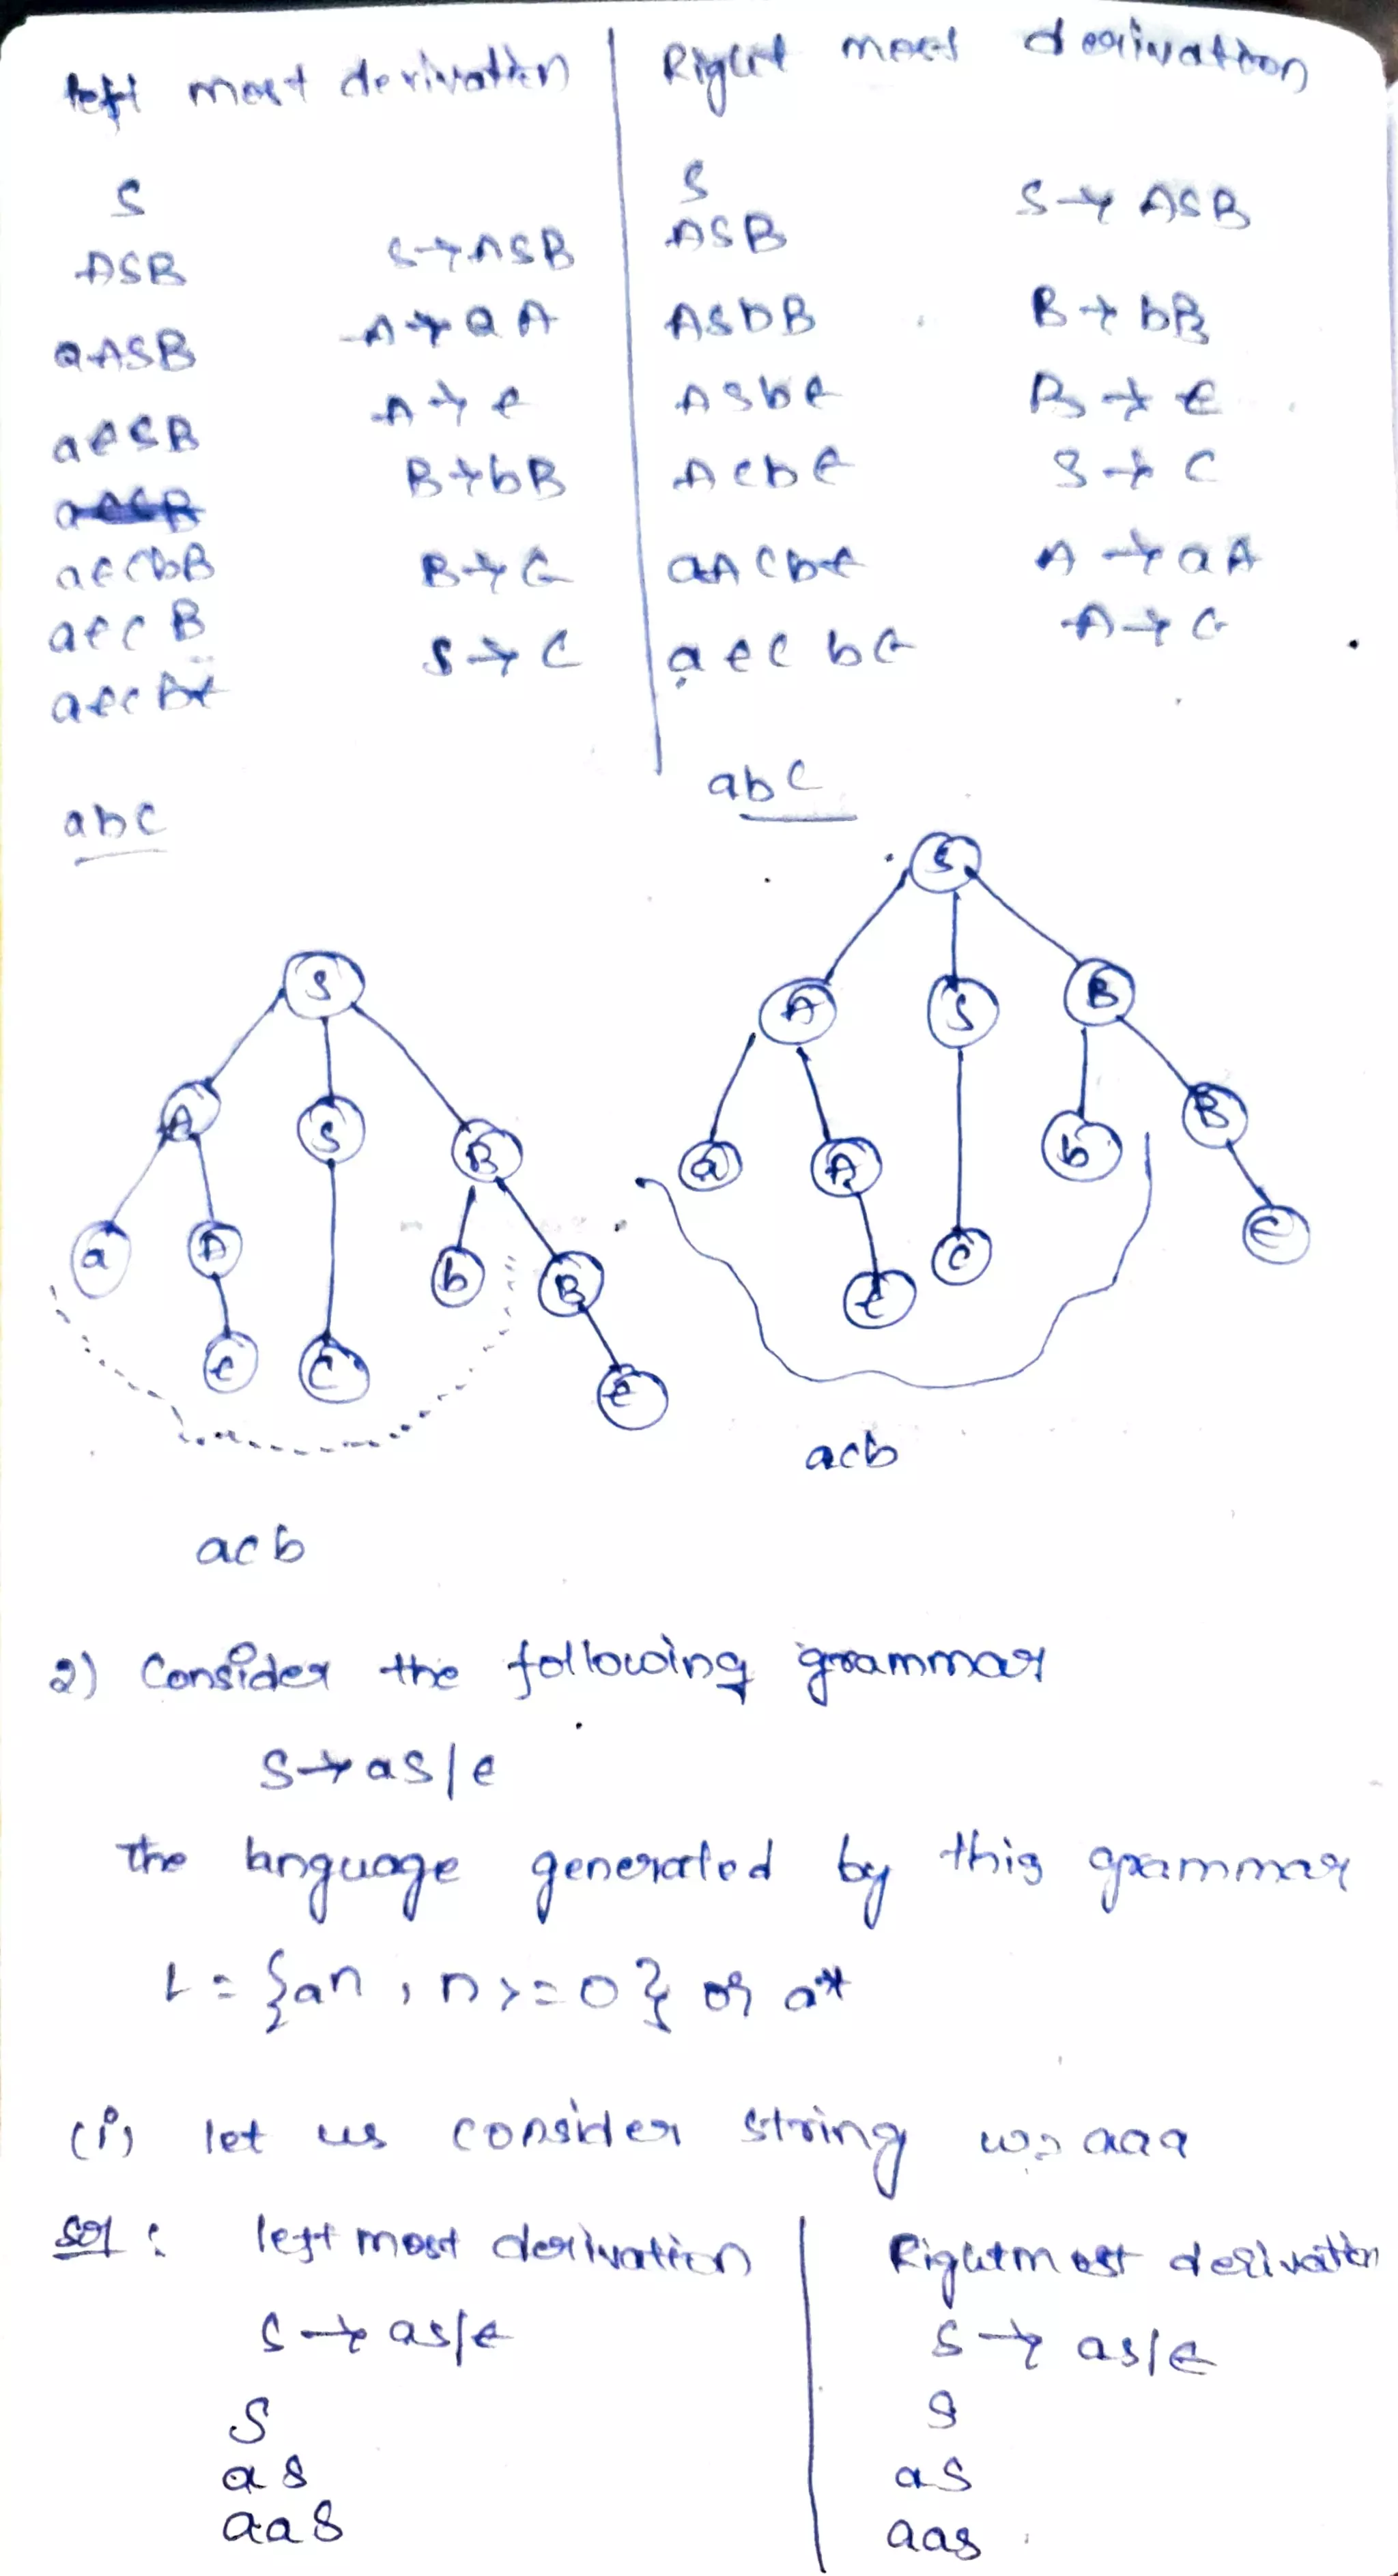 left most derivation
S
ASB S→ASB
aASB A→aA
aϵSB A→ϵ
B→bB
aϵcbB B→ϵ
aϵcB S→C
aϵc
abc
Right most derivation
S S→ASB
ASB
ASbB B→bB
ASbϵ B→ϵ
Acbϵ S→C
aAcbϵ A→aA
aϵcbϵ A→ϵ
abc
S
A S B
a A b B
ϵ C ϵ
acb
S
A S B
a A b B
ϵ C ϵ
acb
2) Consider the following grammar
S→aS/ϵ
The language generated by this grammar
L = {an, n>=0} or a*
(i) let us consider string w= aaa
Sol: left most derivation
S→as/ϵ
S
as
aas
Rightmost derivation
S→as/ϵ
S
as
aas